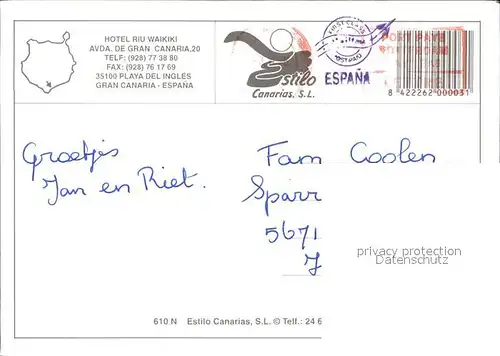 HOTEL RIU WAIKIKI
AVDA. DE GRAN CANARIA,20
TELF: (928) 77 38 80
FAX: (928) 76 17 69
35100 PLAYA DEL INGLES
GRAN CANARIA - ESPAÑA
Estilo
Canarias, S.L.
FIRST CLASS
POST PAID
ESPAÑA
POST PAYE
8 422262 000031
Groetjes
Jan en Riet.
Fam Coolen
Sparr
5671
J
privacy protection
Datenschutz
610 N Estilo Canarias, S.L. © Telf.: 24 6